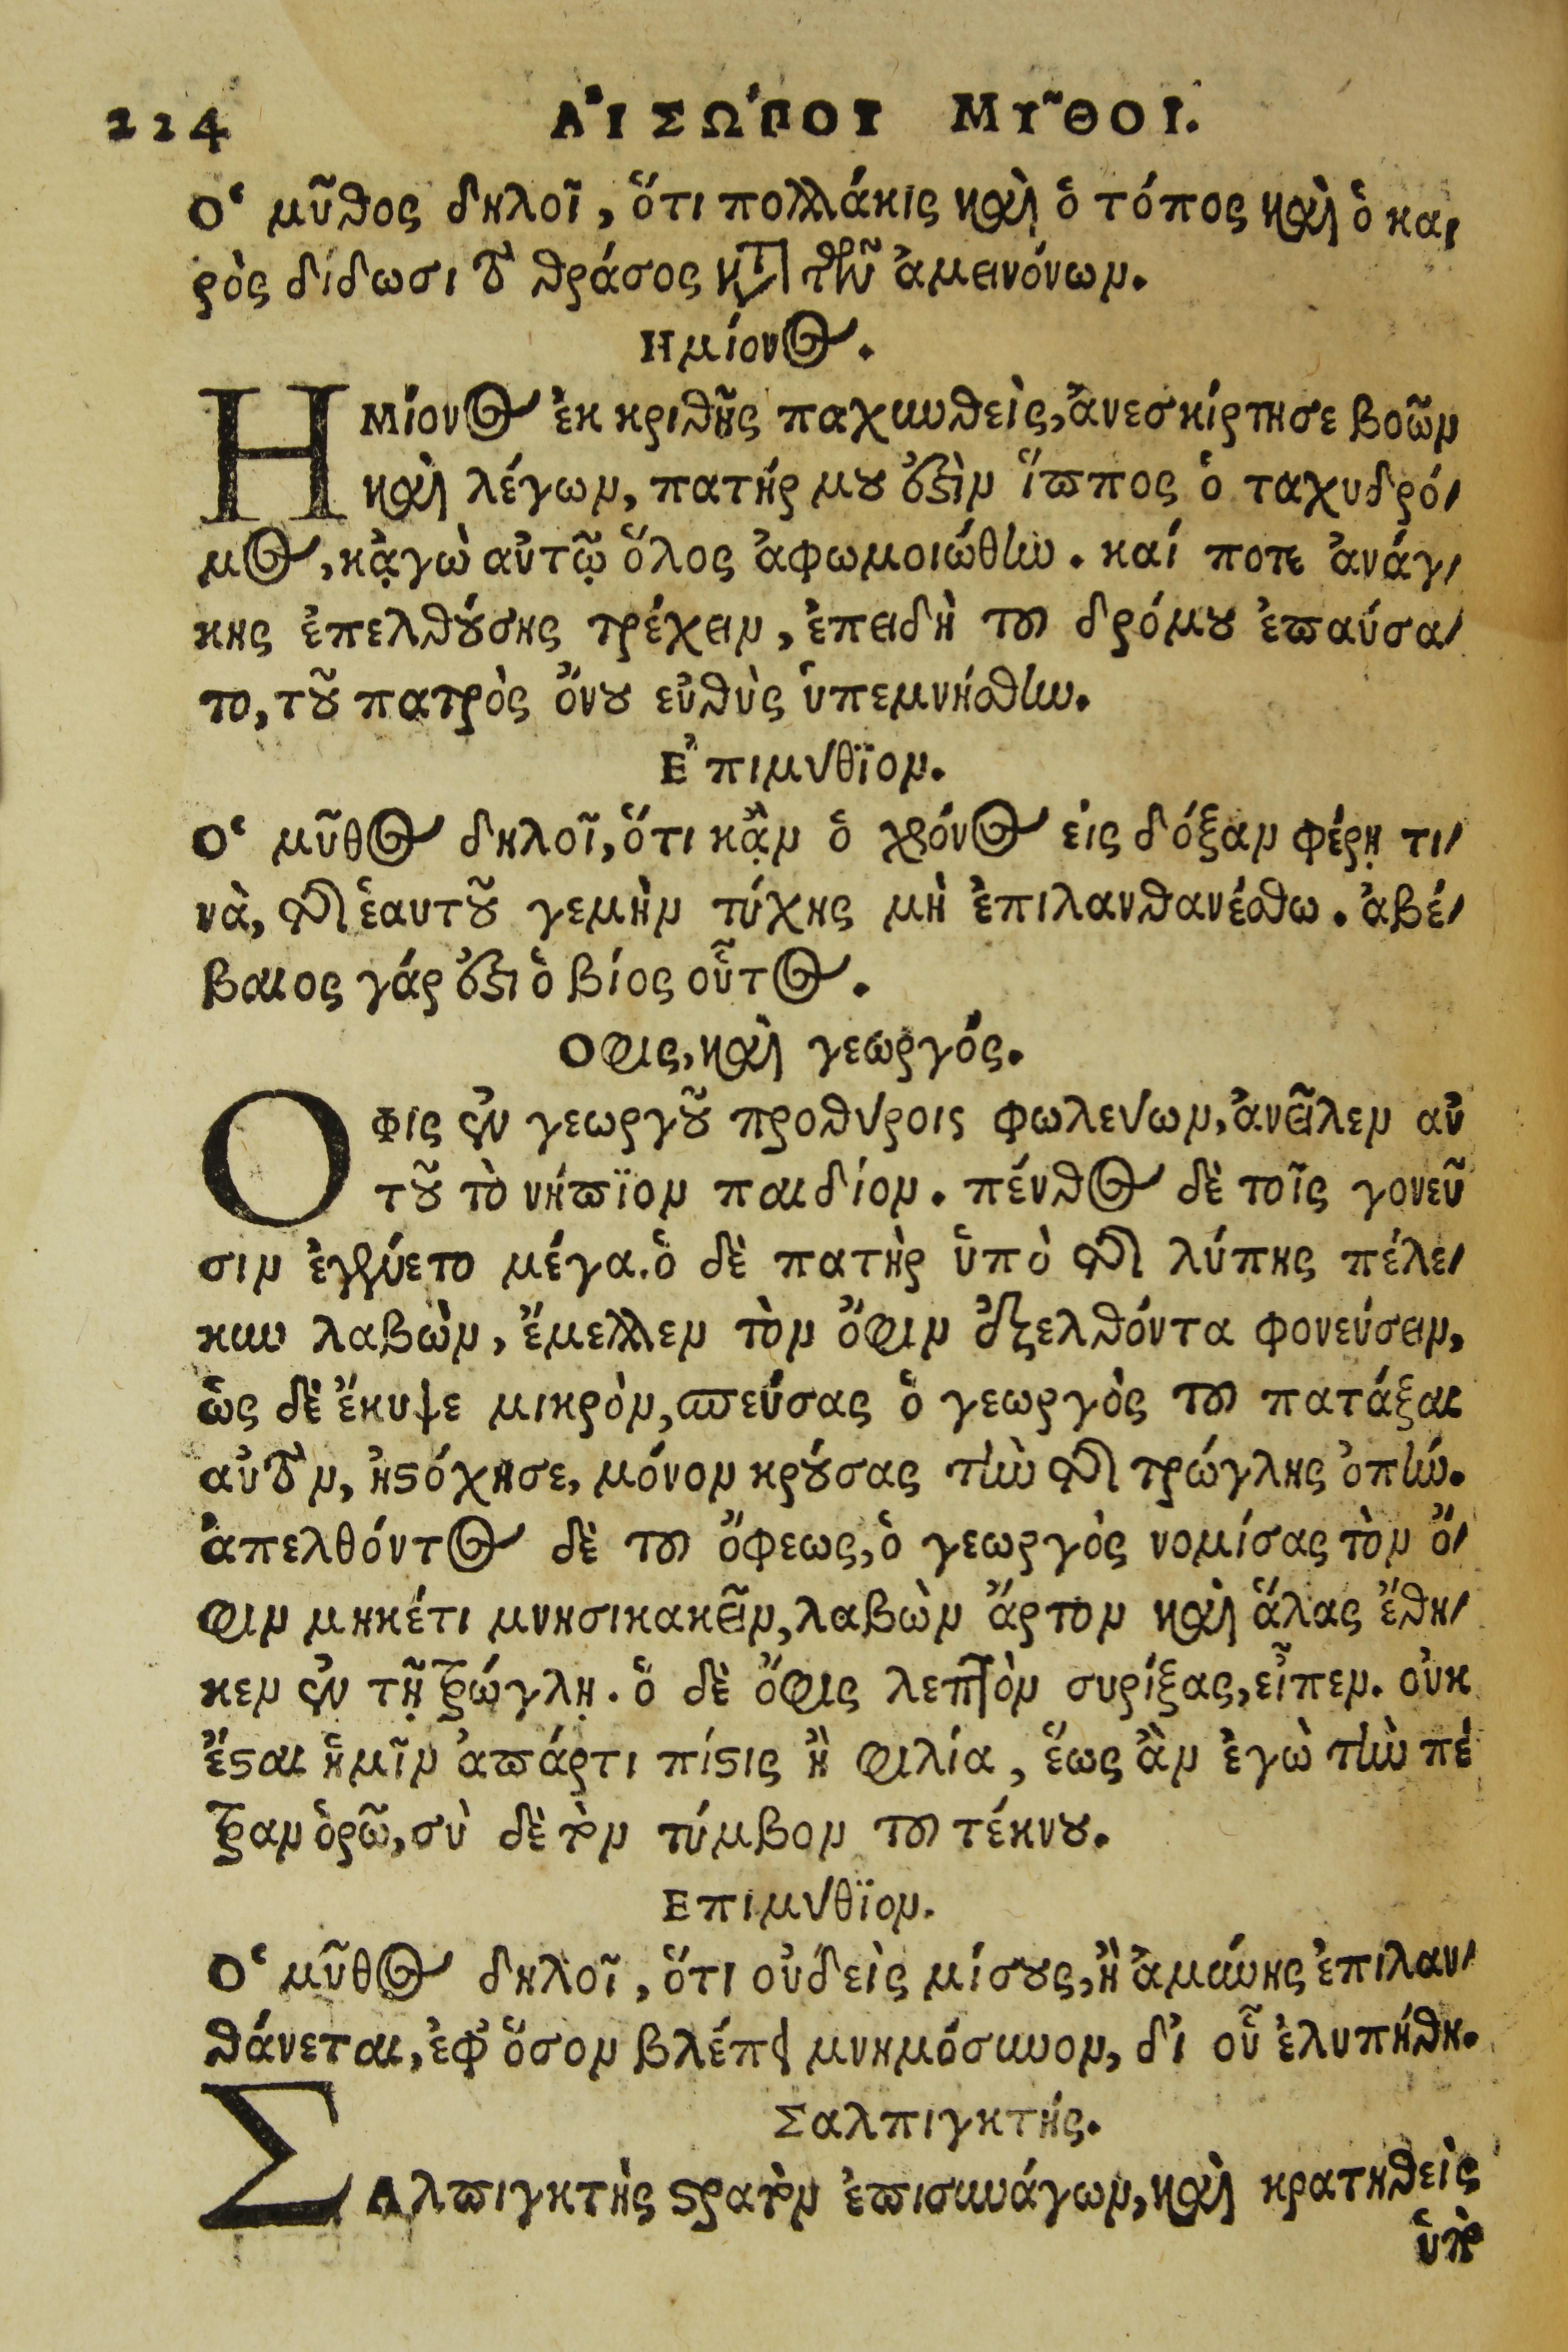 224 ΑἸΣΩ´ΠΟΥ ΜΥ͂ΘΟΙ.
Ο῾ μῦθος δηλοῖ, ὅτι πολλάκις καὶ ὁ τόπος καὶ ὁ και
ρὸς δίδωσι τὸ θράσος κατὰ τῶν ἀμεινόνων.
Ημίονος.
ΗΜίονος ἐκ κριθῆς παχυνθεὶς, ἀνεσκίρτησε βοῶν
καὶ λέγων, πατήρ μου ἐστὶν ἵππος ὁ ταχυδρό-
μος, κᾀγὼ αὐτῷ ὅλος ἀφωμοιώθην. καί ποτε ἀνάγ-
κης ἐπελθούσης τρέχειν, ἐπειδὴ τοῦ δρόμου ἐπαύσα-
το, τοῦ πατρὸς ὄνου εὐθὺς ὑπεμνήσθην.
Ε᾿πιμύθϊον.
Ο῾ μῦθος δηλοῖ, ὅτι κᾂν ὁ χρόνος εἰς δόξαν φέρῃ τι-
νὰ, τῆς ἑαυτοῦ γεμὴν τύχης μὴ ἐπιλανθανέσθω. ἀβέ-
βαιος γάρ ἐστι ὁ βίος οὗτος.
Οφις, καὶ γεωργός.
ΟΦις ἐν γεωργοῦ προθύροις φωλεύων, ἀνεῖλεν αὐ
τοῦ τὸ νήπϊον παιδίον. πένθος δὲ τοῖς γονεῦ
σιν ἐγένετο μέγα. ὁ δὲ πατὴρ ὑπὸ τῆς λύπης πέλε-
κυν λαβὼν, ἔμελλεν τὸν ὄφιν ἐξελθόντα φονεύσειν,
ὡς δὲ ἔκυψε μικρὸν, σπεύσας ὁ γεωργὸς τοῦ πατάξαι
αὐτὸν, ἠστόχησε, μόνον κρούσας τὴν τῆς τρώγλης ὀπήν.
ἀπελθόντος δὲ τοῦ ὄφεως, ὁ γεωργὸς νομίσας τὸν ὄ-
φιν μηκέτι μνησικακεῖν, λαβὼν ἄρτον καὶ ἅλας ἔθη-
κεν ἐν τῇ τρώγλῃ. ὁ δὲ ὄφις λεπτὸν συρίξας, εἶπεν. οὐκ
ἔσται ἡμῖν ἀπάρτι πίστις ἢ φιλία, ἕως ἂν ἐγὼ τὴν πέ
τραν ὁρῶ, σὺ δὲ τὸν τύμβον τοῦ τέκνου.
Επιμύθϊον.
Ο῾ μῦθος δηλοῖ, ὅτι οὐδεὶς μίσους, ἢ ἀμύνης ἐπιλαν-
θάνεται, ἐφ᾿ ὅσον βλέπει μνημόσυνον, δι᾿ οὗ ἐλυπήθη.
Σαλπιγκτής.
ΣΑλπιγκτὴς στρατὸν ἐπισυνάγων, καὶ κρατηθεὶς
ὑπὸ